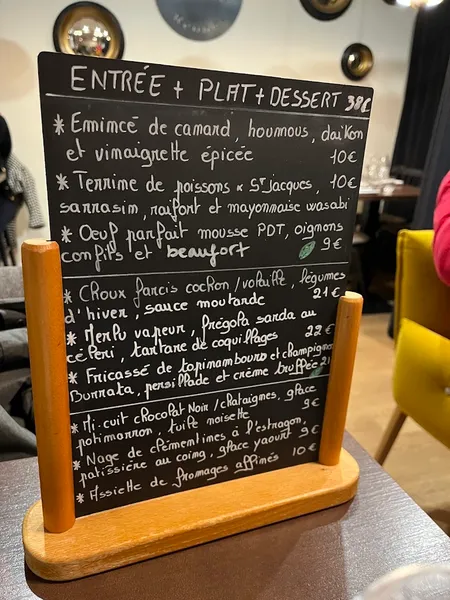 ENTRÉE + PLAT + DESSERT 38€
* Emincé de canard, houmous, daïkon
et vinaigrette épicée 10€
* Terrine de poissons & St Jacques, 10€
sarrasin, raifort et mayonnaise wasabi
* Oeuf parfait mousse PDT, oignons
confits et beaufort 9€
* Choux farcis cochon/volaille, légumes
d'hiver, sauce moutarde 21€
* Merlu vapeur, frégola sarda au
céleri, tartare de coquillages 22€
* Fricassé de topinambours et champignons
Burrata, persillade et crème truffée 21
* Mi-cuit chocolat Noir/chataignes, glace
potimarron, tuile noisette 9€
* Nage de clémentines à l'estragon,
patissière au coing, glace yaourt 9€
* Assiette de fromages affinés 10€